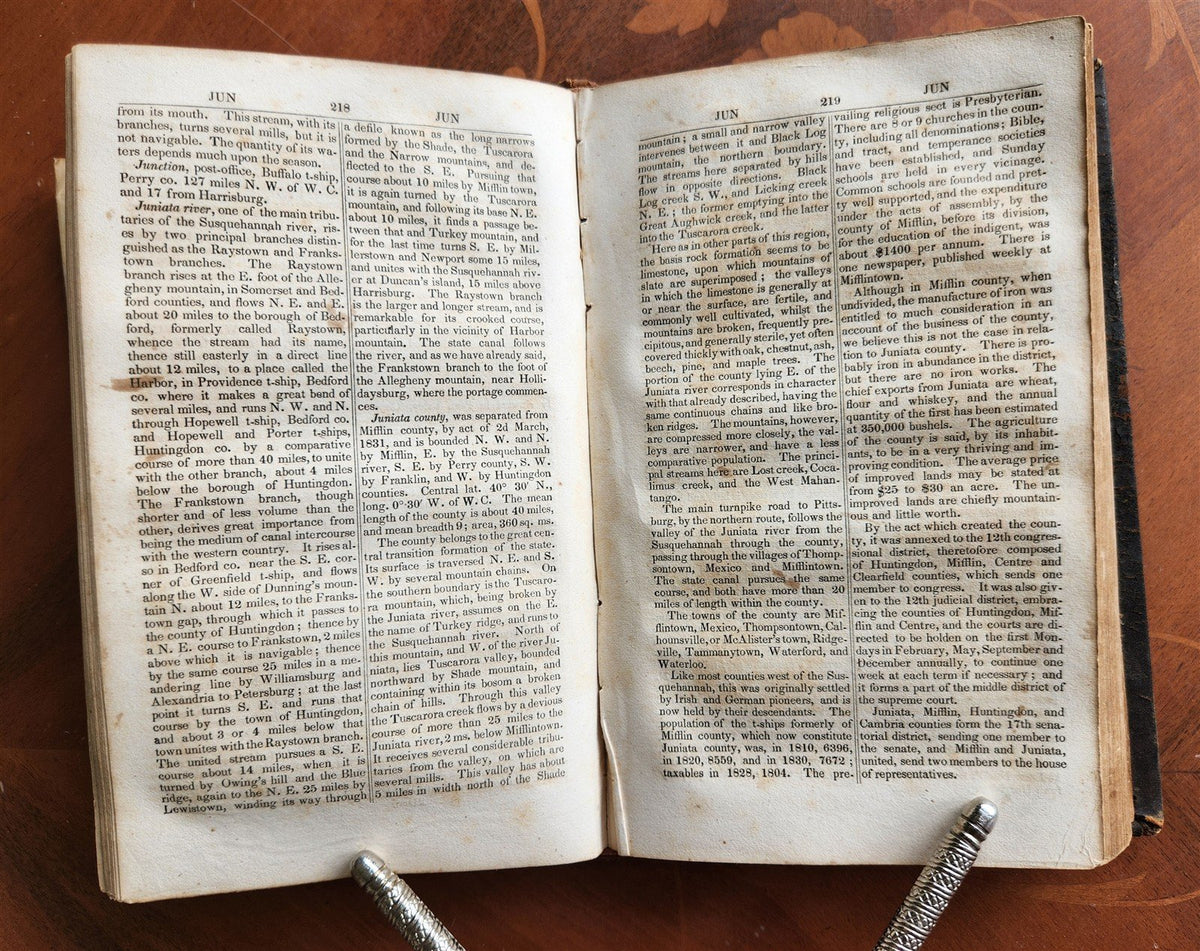 JUN
218
JUN
from its mouth. This stream, with its
branches, turns several mills, but it is
not navigable. The quantity of its wa-
ters depends much upon the season.
Junction, post-office, Buffalo t-ship,
Perry co. 127 miles N. W. of W. C.
and 17 from Harrisburg.
Juniata river, one of the main tribu-
taries of the Susquehannah river, ris-
es by two principal branches distin-
guished as the Raystown and Franks-
town branches. The Raystown
branch rises at the E. foot of the Alle-
gheny mountain, in Somerset and Bed-
ford counties, and flows N. E. and E.
about 20 miles to the borough of Bed-
ford, formerly called Raystown,
whence the stream had its name,
thence still easterly in a direct line
about 12 miles, to a place called the
Harbor, in Providence t-ship, Bedford
co. where it makes a great bend of
several miles, and runs N. W. and N.
through Hopewell t-ship, Bedford co.
and Hopewell and Porter t-ships,
Huntingdon co. by a comparative
course of more than 40 miles, to unite
with the other branch, about 4 miles
below the borough of Huntingdon.
The Frankstown branch, though
shorter and of less volume than the
other, derives great importance from
being the medium of canal intercourse
with the western country. It rises al-
so in Bedford co. near the S. E. cor-
ner of Greenfield t-ship, and flows
along the W. side of Dunning's moun-
tain N. about 12 miles, to the Franks-
town gap, through which it passes to
the county of Huntingdon; thence by
a N. E. course to Frankstown, 2 miles
above which it is navigable; thence
by the same course 25 miles in a me-
andering line by Williamsburg and
Alexandria to Petersburg; at the last
point it turns S. E. and runs that
course by the town of Huntingdon,
and about 3 or 4 miles below that
town unites with the Raystown branch.
The united stream pursues a S. E.
course about 14 miles, when it is
turned by Owing's hill and the Blue
ridge, again to the N. E. 25 miles by
Lewistown, winding its way through
a defile known as the long narrows
formed by the Shade, the Tuscarora
and the Narrow mountains, and de-
flected to the S. E. Pursuing that
course about 10 miles by Mifflin town,
it is again turned by the Tuscarora
mountain, and following its base N. E.
about 10 miles, it finds a passage be-
tween that and Turkey mountain, and
for the last time turns S. E. by Mil-
lerstown and Newport some 15 miles,
and unites with the Susquehannah riv-
er at Duncan's island, 15 miles above
Harrisburg. The Raystown branch
is the larger and longer stream, and is
remarkable for its crooked course,
particularly in the vicinity of Harbor
mountain. The state canal follows
the river, and as we have already said,
the Frankstown branch to the foot of
the Allegheny mountain, near Holli-
daysburg, where the portage commen-
ces.
Juniata county, was separated from
Mifflin county, by act of 2d March,
1831, and is bounded N. W. and N.
by Mifflin, E. by the Susquehannah
river, S. E. by Perry county, S. W.
by Franklin, and W. by Huntingdon
counties. Central lat. 40° 30′ N.,
long. 0° 30′ W. of W. C. The mean
length of the county is about 40 miles,
and mean breadth 9; area, 360 sq. ms.
The county belongs to the great cen-
tral transition formation of the state.
Its surface is traversed N. E. and S.
W. by several mountain chains. On
the southern boundary is the Tuscaro-
ra mountain, which, being broken by
the Juniata river, assumes on the E.
the name of Turkey ridge, and runs to
the Susquehannah river. North of
this mountain, and W. of the river Ju-
niata, lies Tuscarora valley, bounded
northward by Shade mountain, and
containing within its bosom a broken
chain of hills. Through this valley
the Tuscarora creek flows by a devious
course of more than 25 miles to the
Juniata river, 2 ms. below Mifflintown.
It receives several considerable tribu-
taries from the valley, on which are
several mills. This valley has about
5 miles in width north of the Shade
JUN
219
JUN
mountain; a small and narrow valley
intervenes between it and Black Log
mountain, the northern boundary.
The streams here separated by hills
flow in opposite directions. Black
Log creek S. W., and Licking creek
N. E.; the former emptying into the
Great Aughwick creek, and the latter
into the Tuscarora creek.
Here as in other parts of this region,
the basis rock formation seems to be
limestone, upon which mountains of
slate are superimposed; the valleys
in which the limestone is generally at
or near the surface, are fertile, and
commonly well cultivated, whilst the
mountains are broken, frequently pre-
cipitous, and generally sterile, yet often
covered thickly with oak, chestnut, ash,
beech, pine, and maple trees. The
portion of the county lying E. of the
Juniata river corresponds in character
with that already described, having the
same continuous chains and like bro-
ken ridges. The mountains, however,
are compressed more closely, the val-
leys are narrower, and have a less
comparative population. The princi-
pal streams here are Lost creek, Coca-
limus creek, and the West Mahan-
tango.
The main turnpike road to Pitts-
burg, by the northern route, follows the
valley of the Juniata river from the
Susquehannah through the county,
passing through the villages of Thomp-
sontown, Mexico and Mifflintown.
The state canal pursues the same
course, and both have more than 20
miles of length within the county.
The towns of the county are Mif-
flintown, Mexico, Thompsontown, Cal-
hounsville, or McAlister's town, Ridge-
ville, Tammanytown, Waterford, and
Waterloo.
Like most counties west of the Sus-
quehannah, this was originally settled
by Irish and German pioneers, and is
now held by their descendants. The
population of the t-ships formerly of
Mifflin county, which now constitute
Juniata county, was, in 1810, 6396,
in 1820, 8559, and in 1830, 7672;
taxables in 1828, 1804. The pre-
vailing religious sect is Presbyterian.
There are 8 or 9 churches in the coun-
ty, including all denominations; Bible,
and tract, and temperance societies
have been established, and Sunday
schools are held in every vicinage.
Common schools are founded and pret-
ty well supported, and the expenditure
under the acts of assembly, by the
county of Mifflin, before its division,
for the education of the indigent, was
about $1400 per annum. There is
one newspaper, published weekly at
Mifflintown.
Although in Mifflin county, when
undivided, the manufacture of iron was
entitled to much consideration in an
account of the business of the county,
we believe this is not the case in rela-
tion to Juniata county. There is pro-
bably iron in abundance in the district,
but there are no iron works. The
chief exports from Juniata are wheat,
flour and whiskey, and the annual
quantity of the first has been estimated
at 350,000 bushels. The agriculture
of the county is said, by its inhabit-
ants, to be in a very thriving and im-
proving condition. The average price
of improved lands may be stated at
from $25 to $30 an acre. The un-
improved lands are chiefly mountain-
ous and little worth.
By the act which created the coun-
ty, it was annexed to the 12th congres-
sional district, theretofore composed
of Huntingdon, Mifflin, Centre and
Clearfield counties, which sends one
member to congress. It was also giv-
en to the 12th judicial district, embra-
cing the counties of Huntingdon, Mif-
flin and Centre, and the courts are di-
rected to be holden on the first Mon-
days in February, May, September and
December annually, to continue one
week at each term if necessary; and
it forms a part of the middle district of
the supreme court.
Juniata, Mifflin, Huntingdon, and
Cambria counties form the 17th sena-
torial district, sending one member to
the senate, and Mifflin and Juniata,
united, send two members to the house
of representatives.